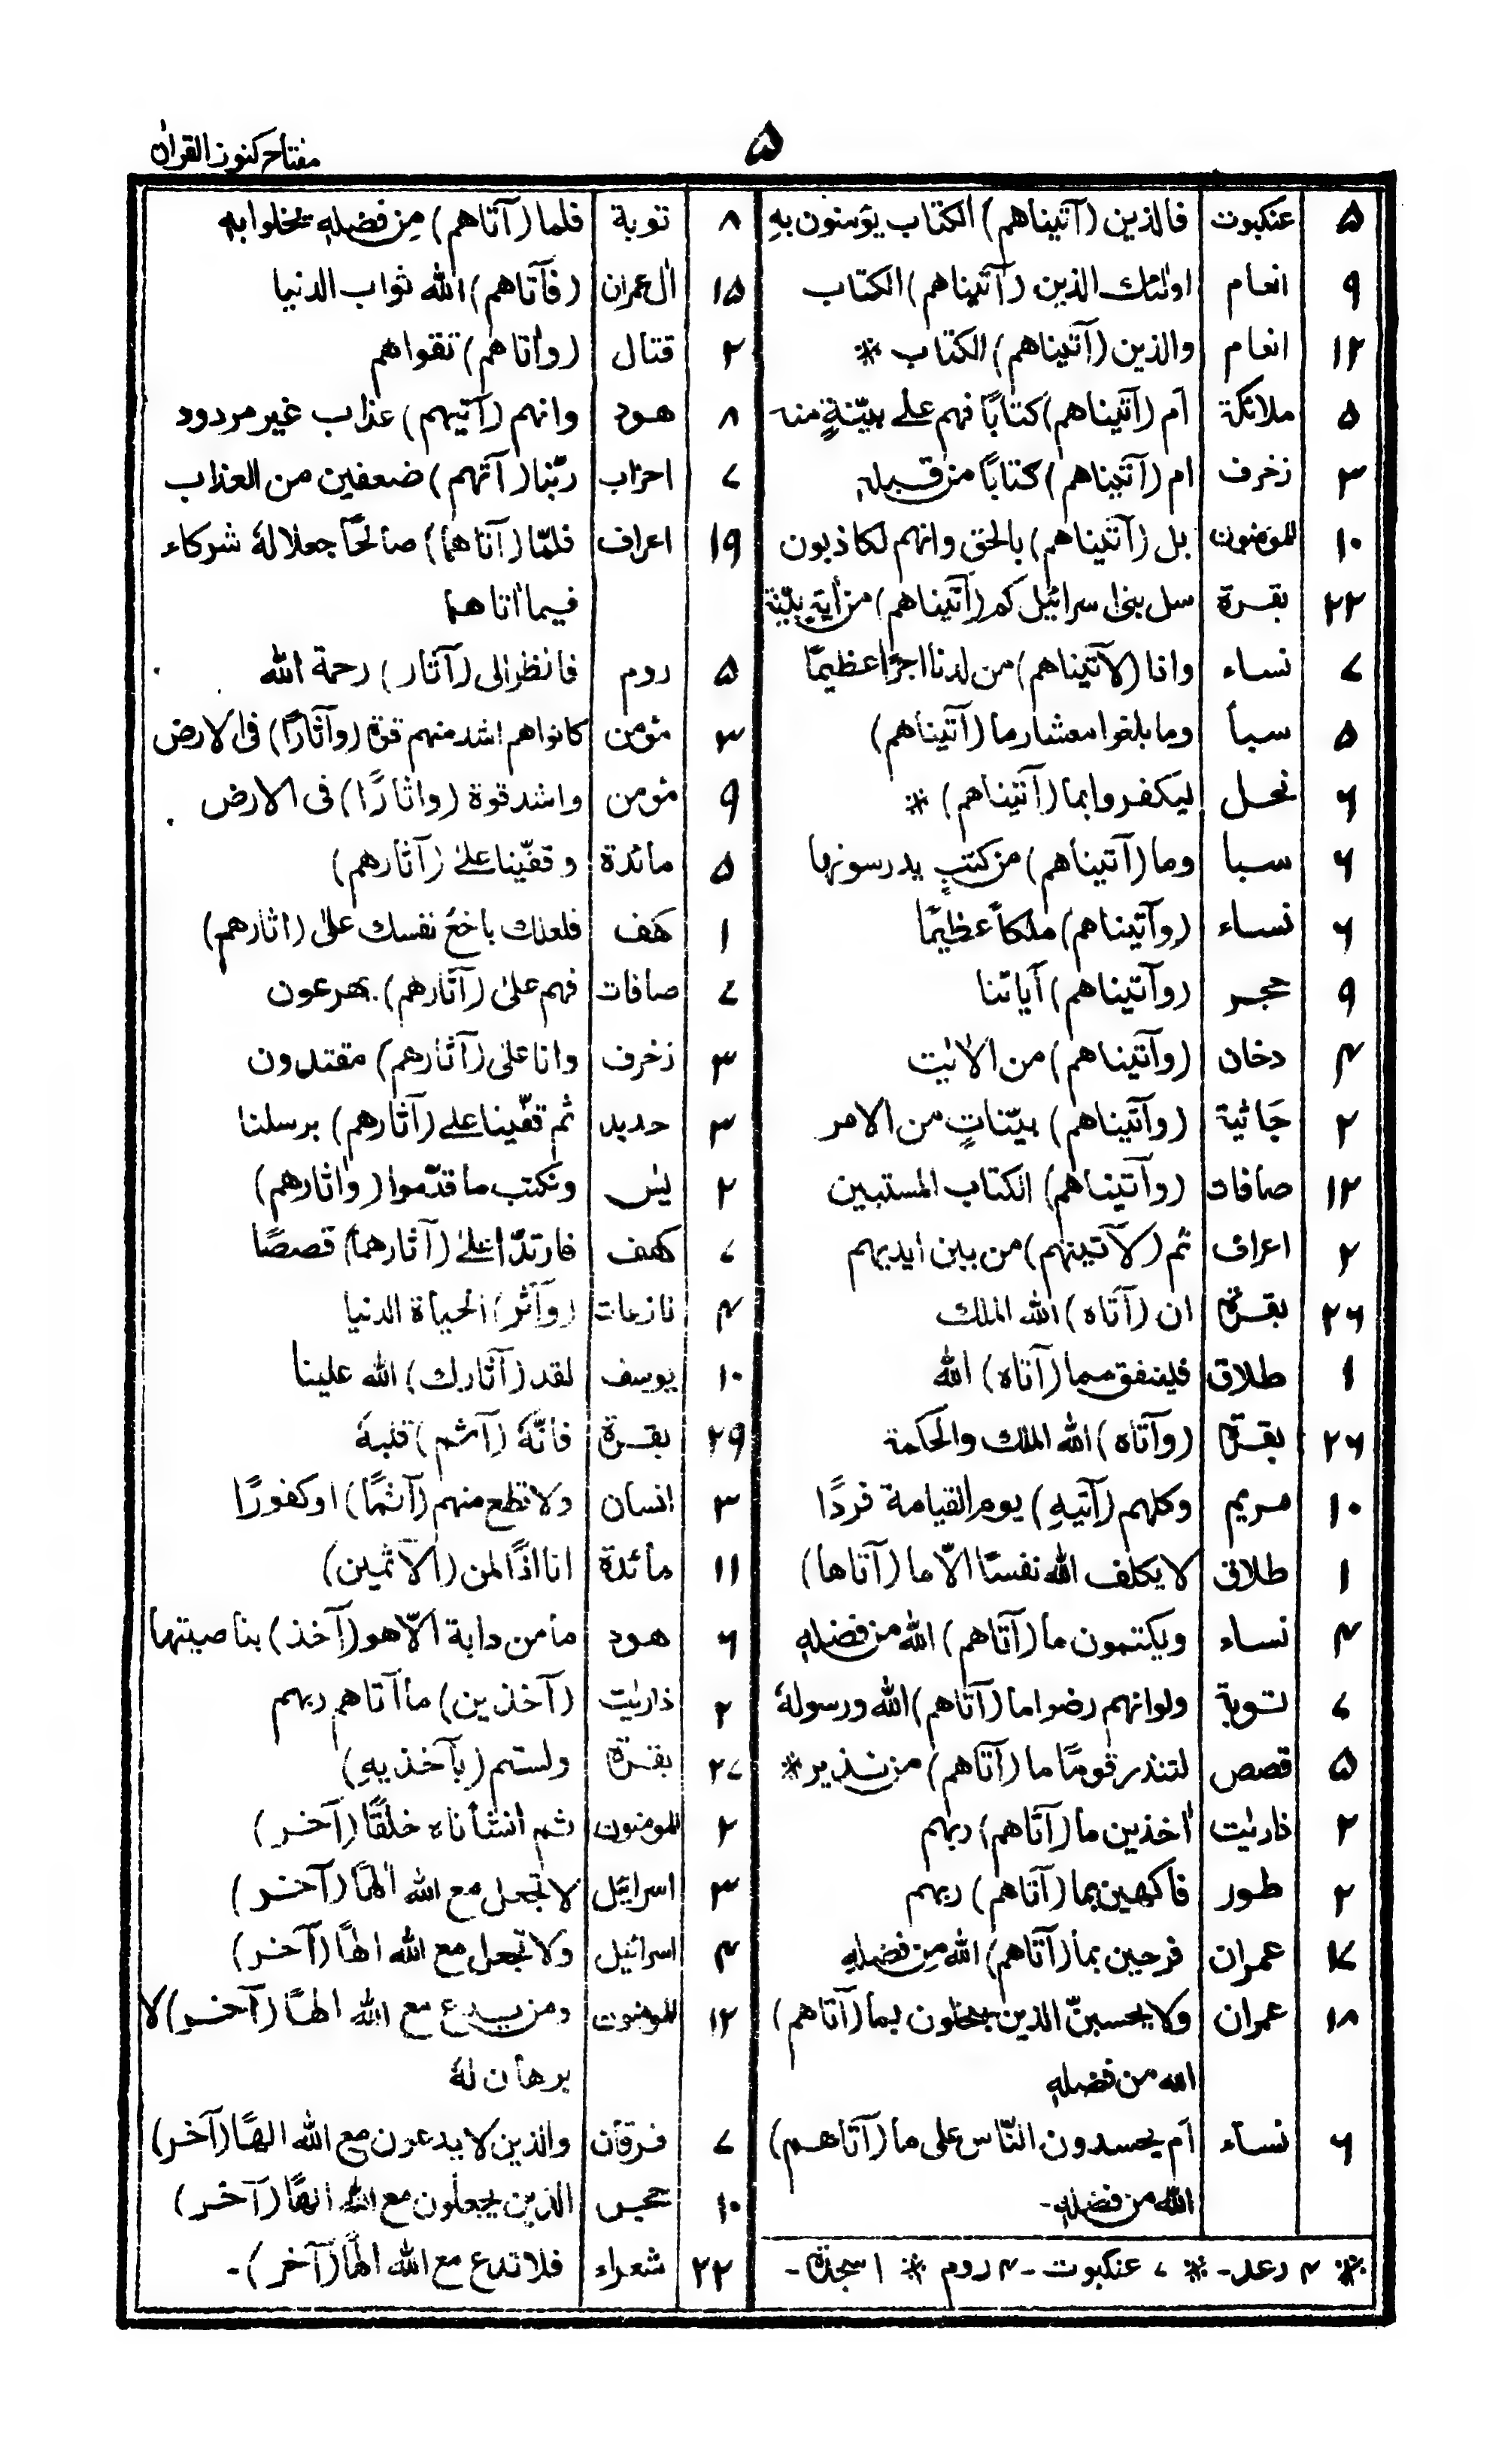 ۵
مفتاح كنوز القران
۵ عنكبوت فالذين (آتيناهم) الكتاب يؤمنون بهٖ
۹ انعام اولٰئك الذين (آتيناهم) الكتاب
۱۲ انعام والذين (آتيناهم) الكتاب *
۵ ملائكة ام (آتيناهم) كتابًا فهم علے بيّنةٍ منه
۳ زخرف ام (آتيناهم) كتابًا من قبلهٖ
۱۰ المؤمنون بل (آتيناهم) بالحق وانهم لكاذبون
۲۲ بقرة سل بنى اسرائيل كم (آتيناهم) من اٰيةٍ بيّنة
۷ نساء واذا (لآتيناهم) من لدنا اجرًا عظيمًا
۵ سبأ وما بلغوا معشار ما (آتيناهم)
۶ نحل ليكفروا بما (آتيناهم) *
۶ سبا وما (آتيناهم) من كتبٍ يدرسونها
۶ نساء (وآتيناهم) ملكاً عظيمًا
۹ حجر (وآتيناهم) آياتنا
۴ دخان (وآتيناهم) من الاٰيٰت
۲ جَاثية (وآتيناهم) بيّناتٍ من الامر
۱۲ صافات (وآتيناهما) الكتاب المستبين
۲ اعراف ثم (لآتينهم) من بين ايديهم
۲۶ بقرة ان (آتاه) الله الملك
۱ طلاق فلينفق مما (آتاه) الله
۲۶ بقرة (وآتاه) الله الملك والحكمة
۱۰ مريم وكلهم (آتيهِ) يوم القيامة فردًا
۱ طلاق لا يكلف الله نفسًا الّا ما (آتاها)
۴ نساء ويكتمون ما (آتاهم) الله من فضلهٖ
۷ توبة ولو انهم رضوا ما (آتاهم) الله ورسولهٗ
۵ قصص لتنذر قومًا ما (آتاهم) من نذير *
۲ ذاريٰت اٰخذين ما (آتاهم) ربهم
۲ طور فاكهين بما (آتاهم) ربهم
۱۷ عمران فرحين بما (آتاهم) الله مِن فضلهٖ
۱۸ عمران ولا يحسبنّ الذين يبخلون بما (آتاهم)
الله من فضلهٖ
۶ نساء ام يحسدون النّاس على ما (آتاهم)
الله من فضلهٖ-
* ۴ رعد- * ۷ عنكبوت - ۴ روم * ۱ سجدة -
۸ توبة فلما (آتاهم) مِن فضلهٖ بخلوا بهٖ
۱۵ اٰل عمران (فآتاهم) الله ثواب الدنيا
۲ قتال (واٰتاهم) تقواهم
۸ هود وانهم (آتيهم) عذاب غير مردود
۷ احزاب ربّنا (آتهم) ضعفين من العذاب
۱۹ اعراف فلمّا (آتاهما) صالحًا جعلا لهٗ شركاء
فيما اٰتاهما
۵ روم فانظر الى (آثار) رحمة الله
۳ مؤمن كانوا هم اشد منهم قوة (وآثارًا) فى الارض
۹ مؤمن واشد قوة (واٰثارًا) فى الارض
۵ مائدة وقفّينا علےٰ (آثارهم)
۱ كهف فلعلك باخعٌ نفسك علىٰ (اٰثارهم)
۷ صافات فهم علىٰ (آثارهم) يهرعون
۳ زخرف وانا علىٰ (آثارهم) مقتدون
۳ حديد ثم قفّينا علے (آثارهم) برسلنا
۲ يٰس ونكتب ما قدّموا (واٰثارهم)
۷ كهف فارتدّا علےٰ (آثارهما) قصصًا
۴ نازعات (وآثر) الحياة الدنيا
۱۰ يوسف لقد (آثارك) الله علينا
۲۹ بقرة فانّهٗ (آثم) قلبهٗ
۳ انسان ولا تطع منهم (آثمًا) او كفورًا
۱۱ مائدة انا اذًا لمن (الآثمين)
۶ هود ما من دابة الّا هو (آخذ) بناصيتها
۲ ذاريٰت (آخذين) ما آتاهم ربهم
۲۷ بقرة ولستم (بآخذيهِ)
۲ المومنون ثم انشأناه خلقًا (آخر)
۳ اسرائيل لا تجعل مع الله الٰهًا (آخر)
۴ اسرائيل ولا تجعل مع الله الهًا (آخر)
۱۲ المومنون ومن يدع مع الله الهًا (آخر) لا
برهان لهٗ
۷ فرقان والذين لا يدعون مع الله الهًا (آخر)
۱۰ حجر الذين يجعلون مع الله الهًا (آخر)
۲۲ شعراء فلا تدع مع الله الهًا (آخر)-